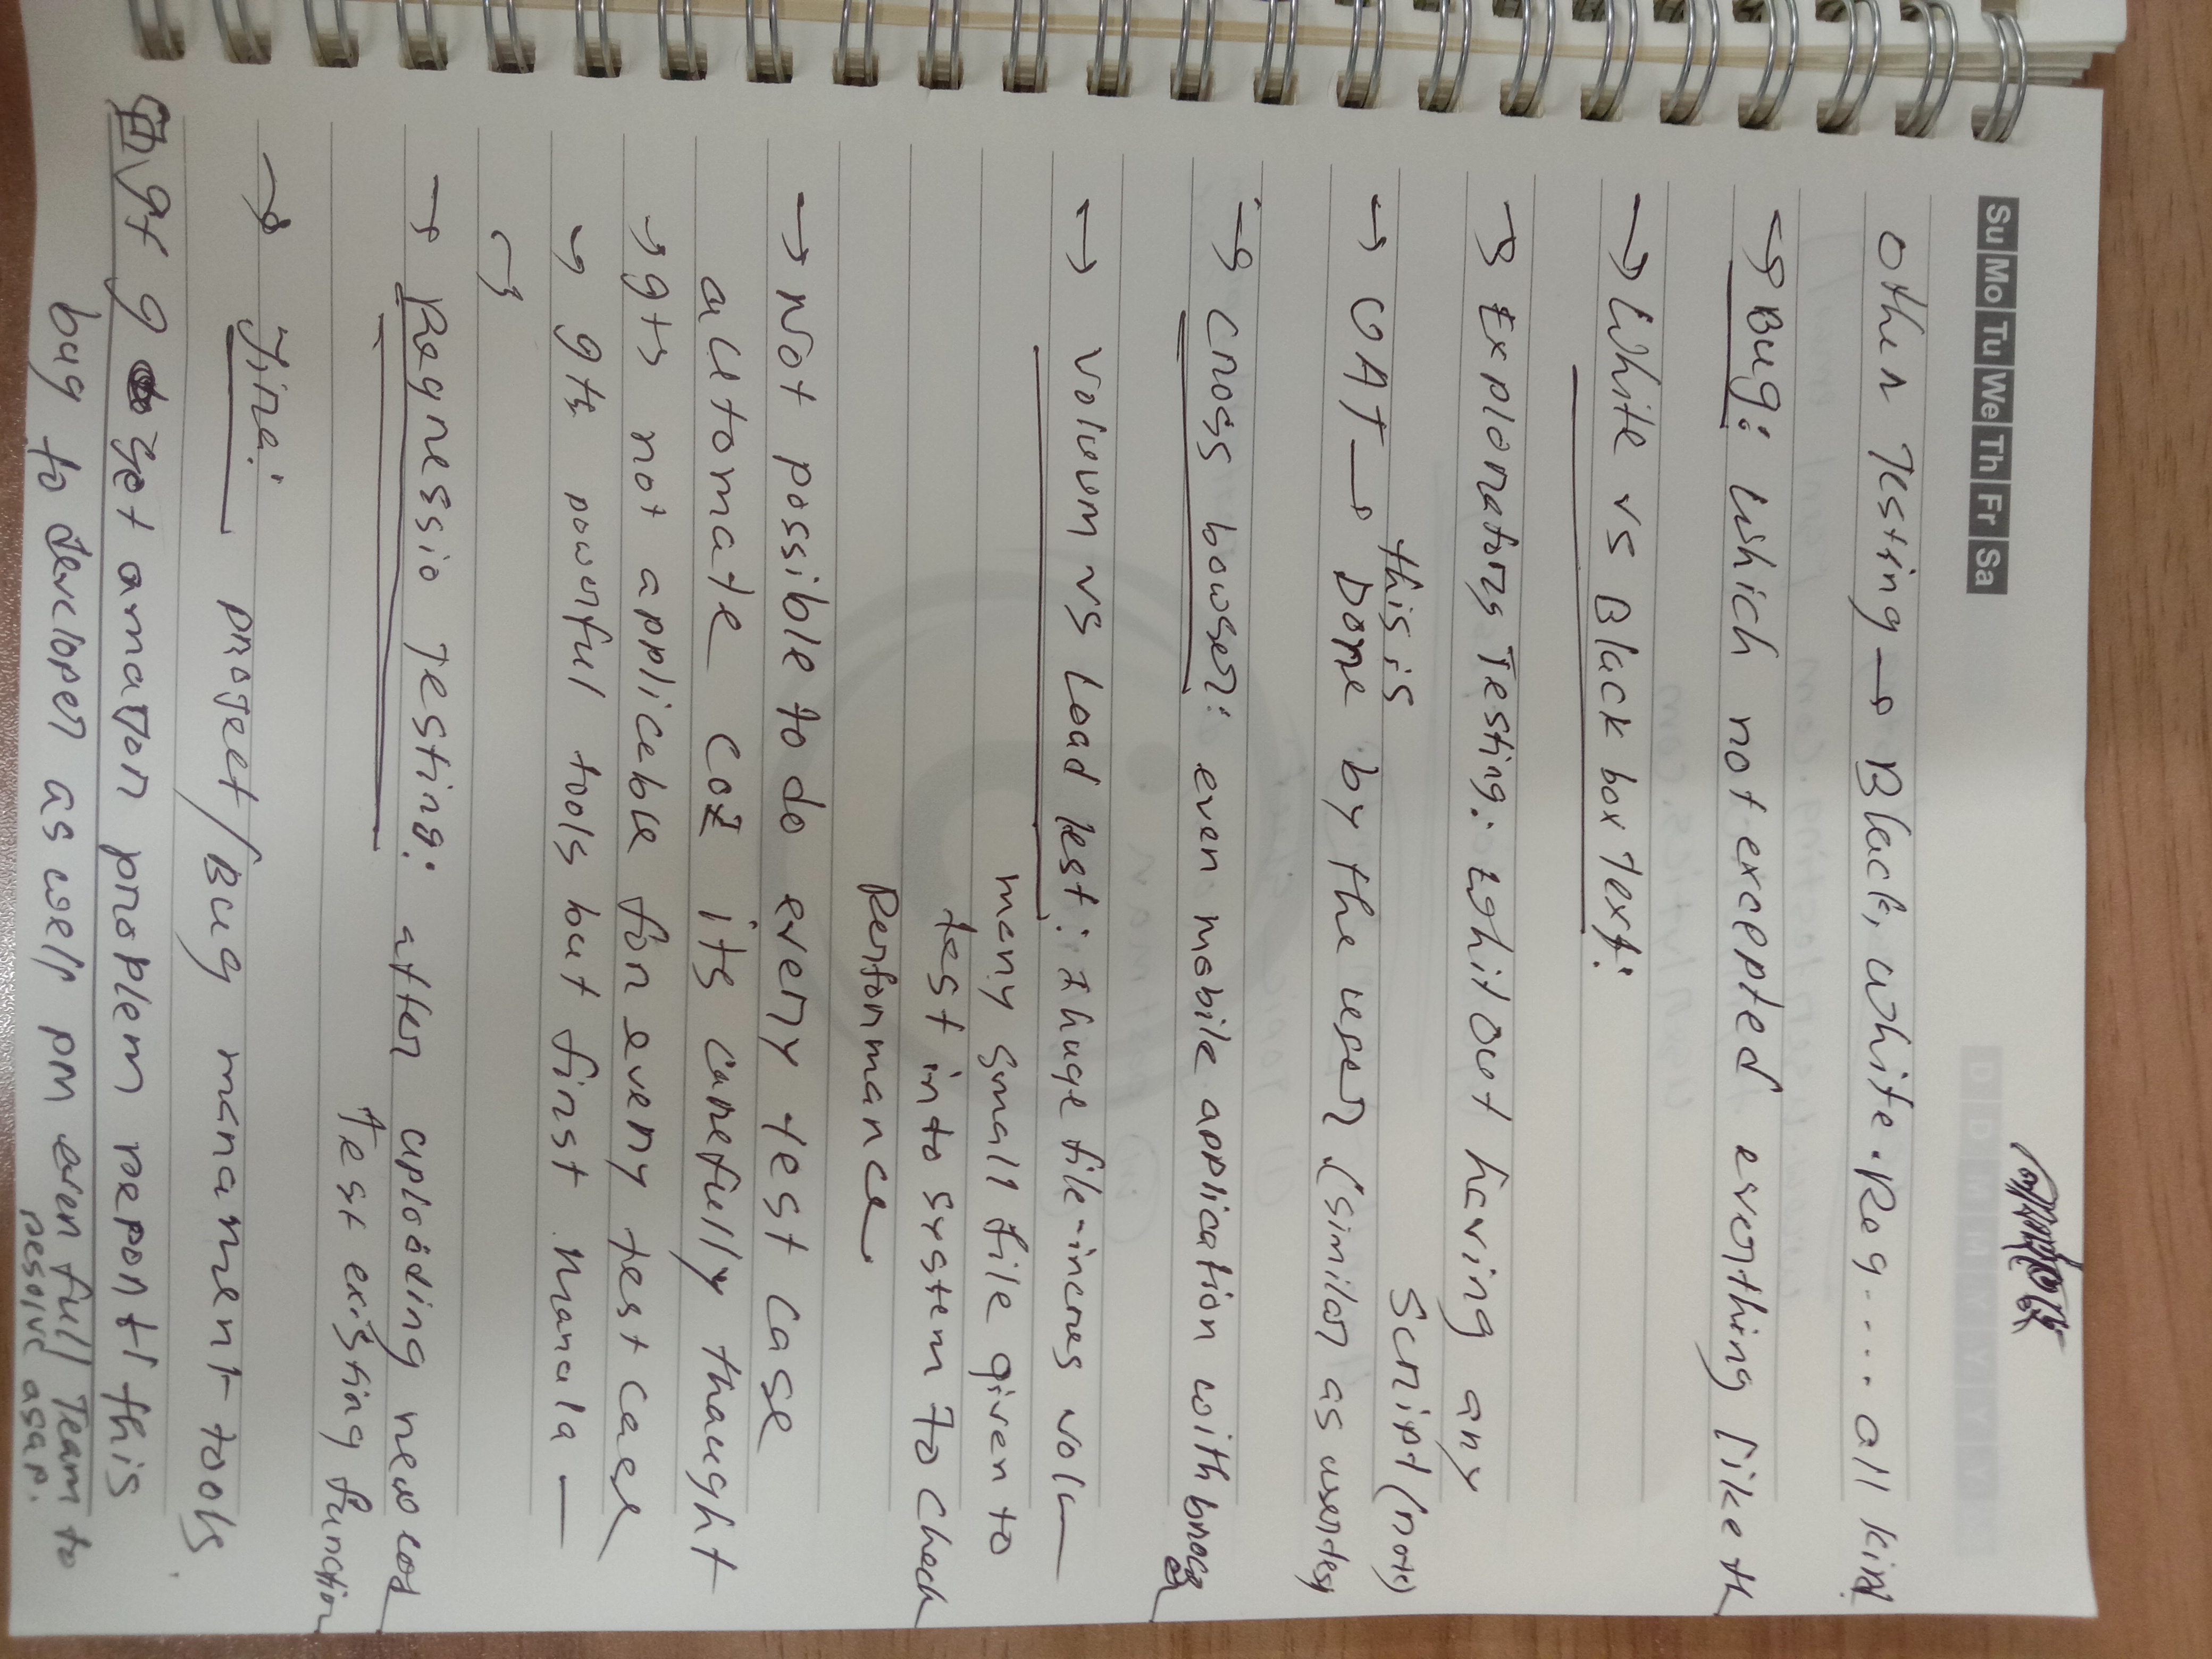 Su Mo Tu We Th Fr Sa
D D M M Y Y Y Y
Other Testing → Black, White. Reg.... all kind
→ Bug: Which not excepted everthing like th
→ White vs Black box Text:
→ Exploratory Testing: Whitout having any
script (note)
this is
→ UAT → Done by the user (similar as usertes
→ Cross bowser: even mobile application with
→ Voluum vs Load test: 1 huge file-incres volu
many small file given to
test into system to check
Performance
→ Not possible to do every test case
automate coz its carefully thought
→ Its not applicable for every test case
→ Its powerful tools but first Manala —
→
→ Regressio Testing: after uploading new cod
Test existing function
→ Jira: project/Bug manament tools
If I get amazon problem report this
bug to developer as well pm even full Team to
resolve asap.